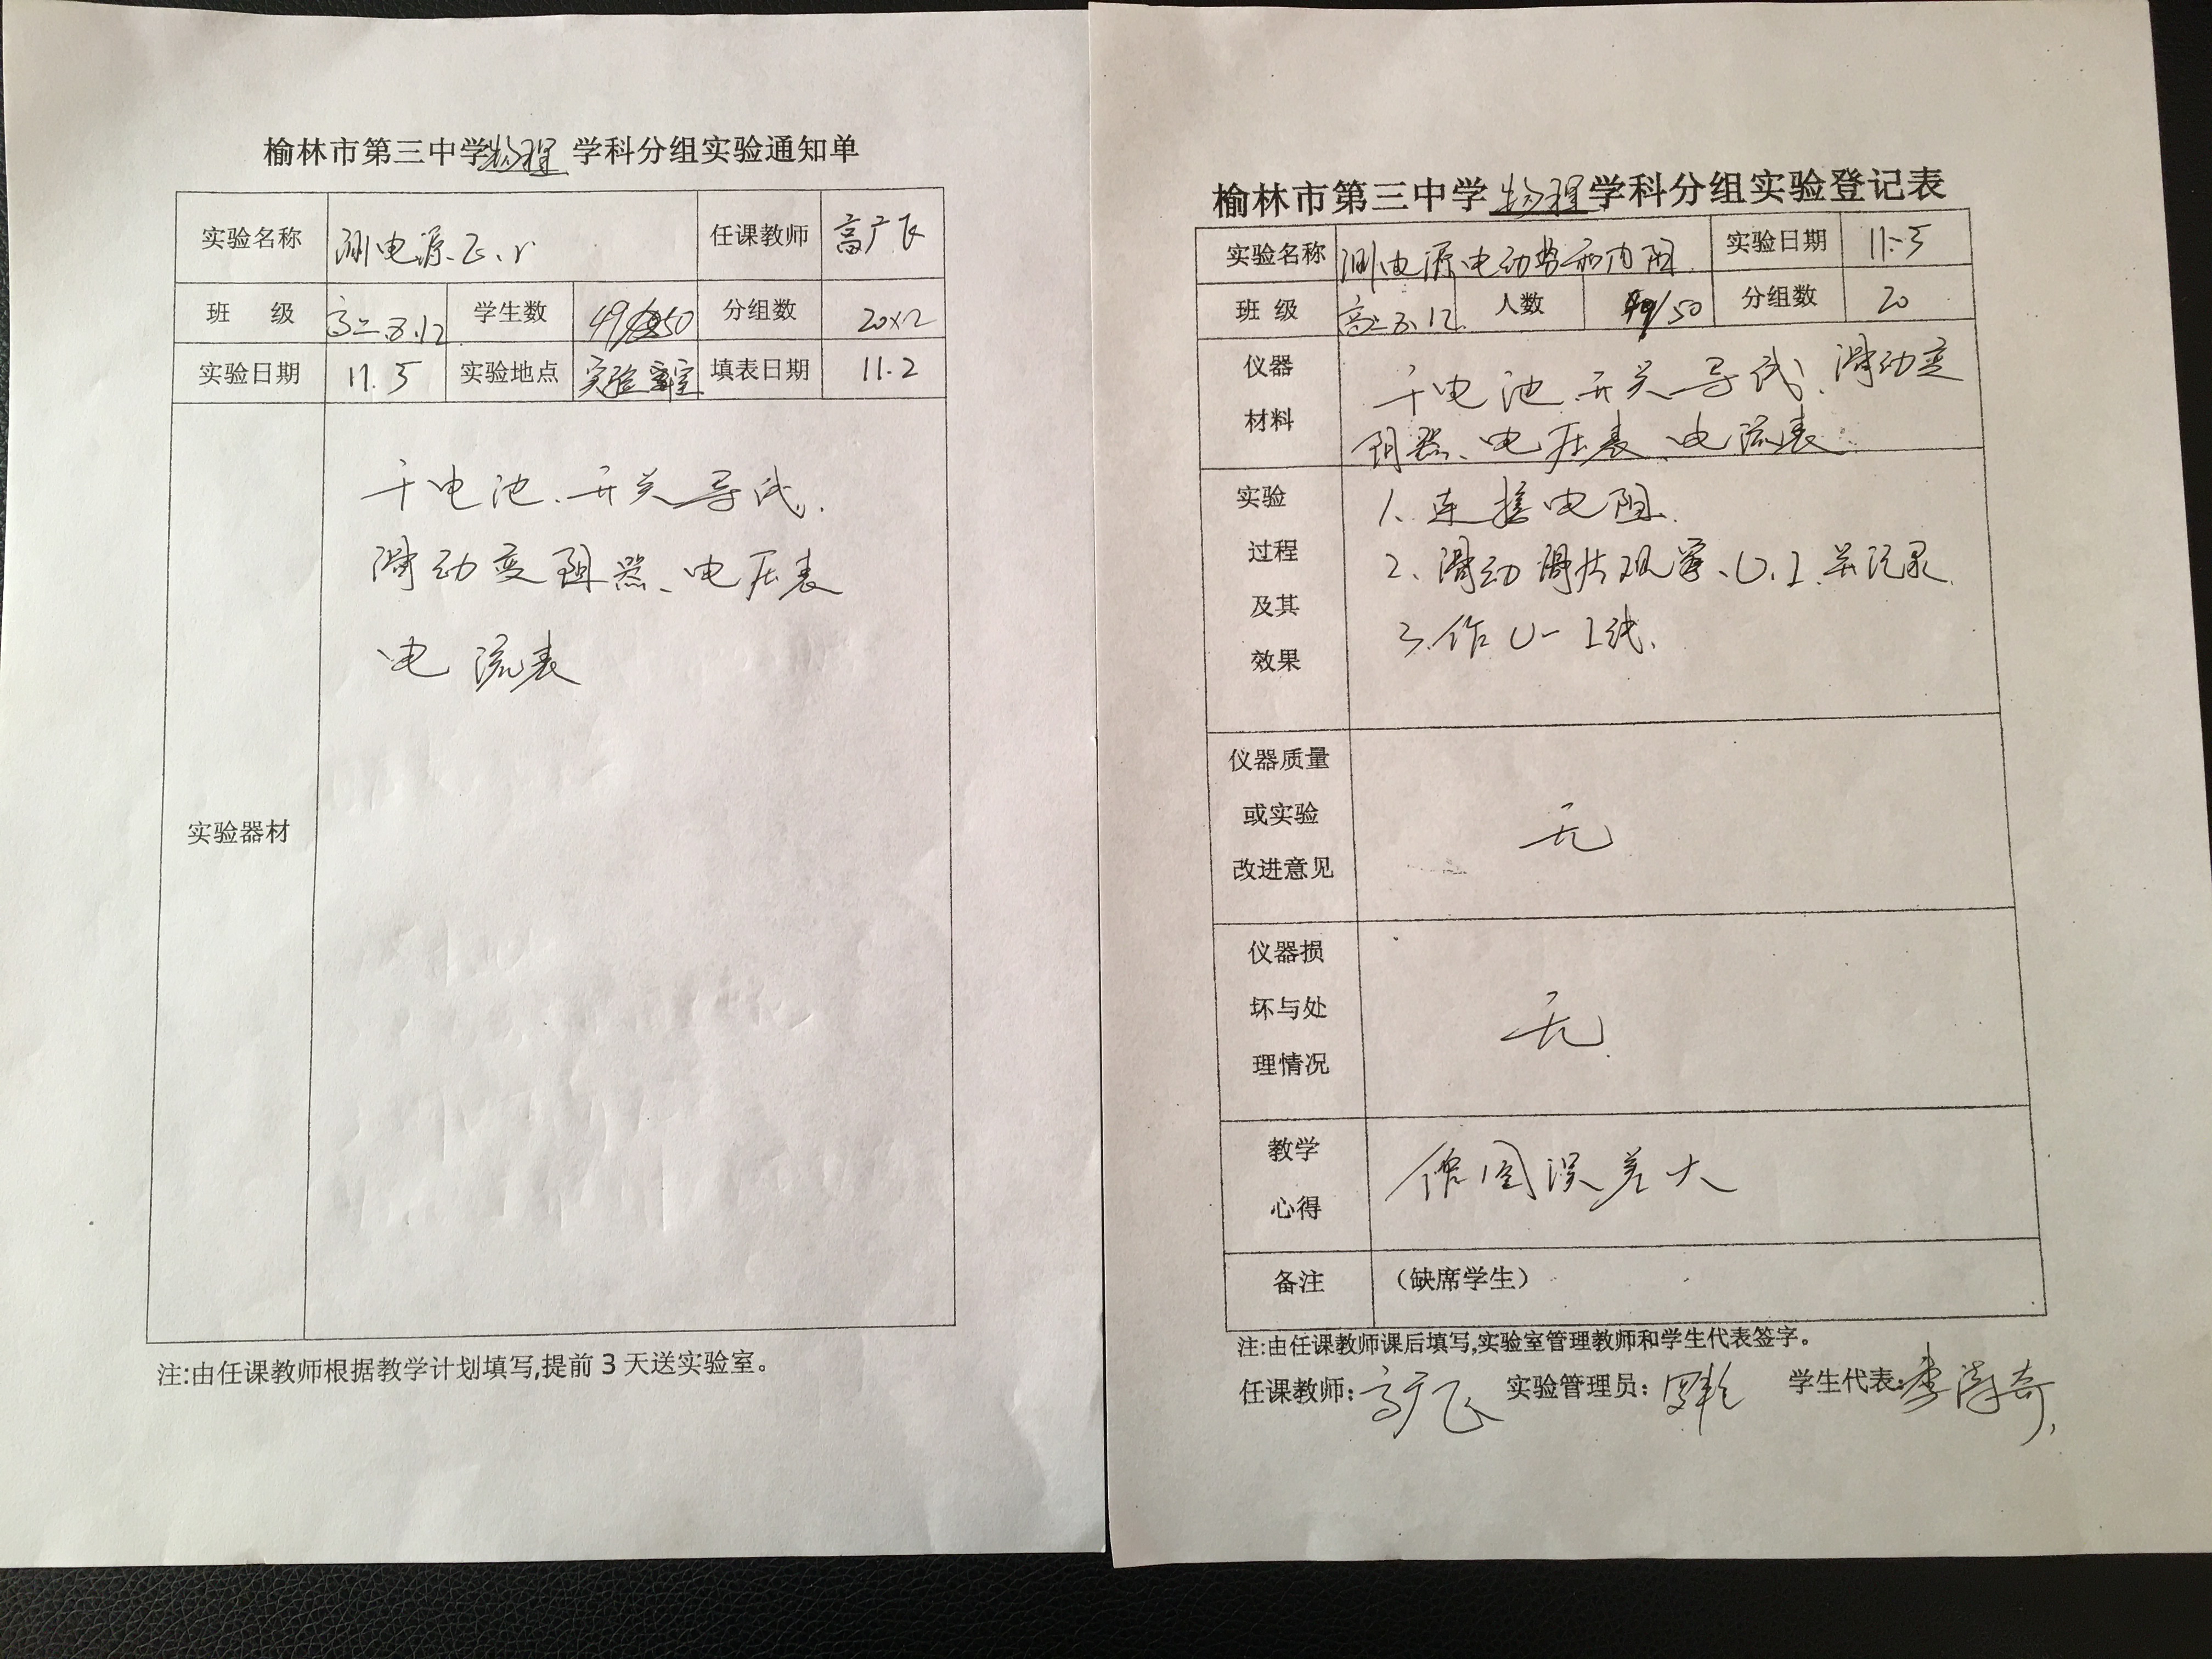 榆林市第三中学物理 学科分组实验通知单
实验名称 测电源E、r 任课教师 高广飞
班 级 高二 8.12 学生数 49/50 分组数 20×2
实验日期 11.5 实验地点 实验室 填表日期 11.2
实验器材
干电池、开关导线、
滑动变阻器、电压表
电流表
注:由任课教师根据教学计划填写,提前3天送实验室。
榆林市第三中学物理学科分组实验登记表
实验名称 测电源电动势和内阻 实验日期 11.5
班 级 高二 8.12 人数 49/50 分组数 20
仪器
材料
干电池 开关 导线、滑动变
阻器、电压表、电流表
实验
过程
及其
效果
1、连接电阻
2、滑动滑片观察、U、I并记录
3、作U-I线.
仪器质量
或实验
改进意见
无
仪器损
坏与处
理情况
无
教学
心得
作图误差大
备注 (缺席学生)
注:由任课教师课后填写,实验室管理教师和学生代表签字。
任课教师:高广飞 实验管理员: 学生代表: